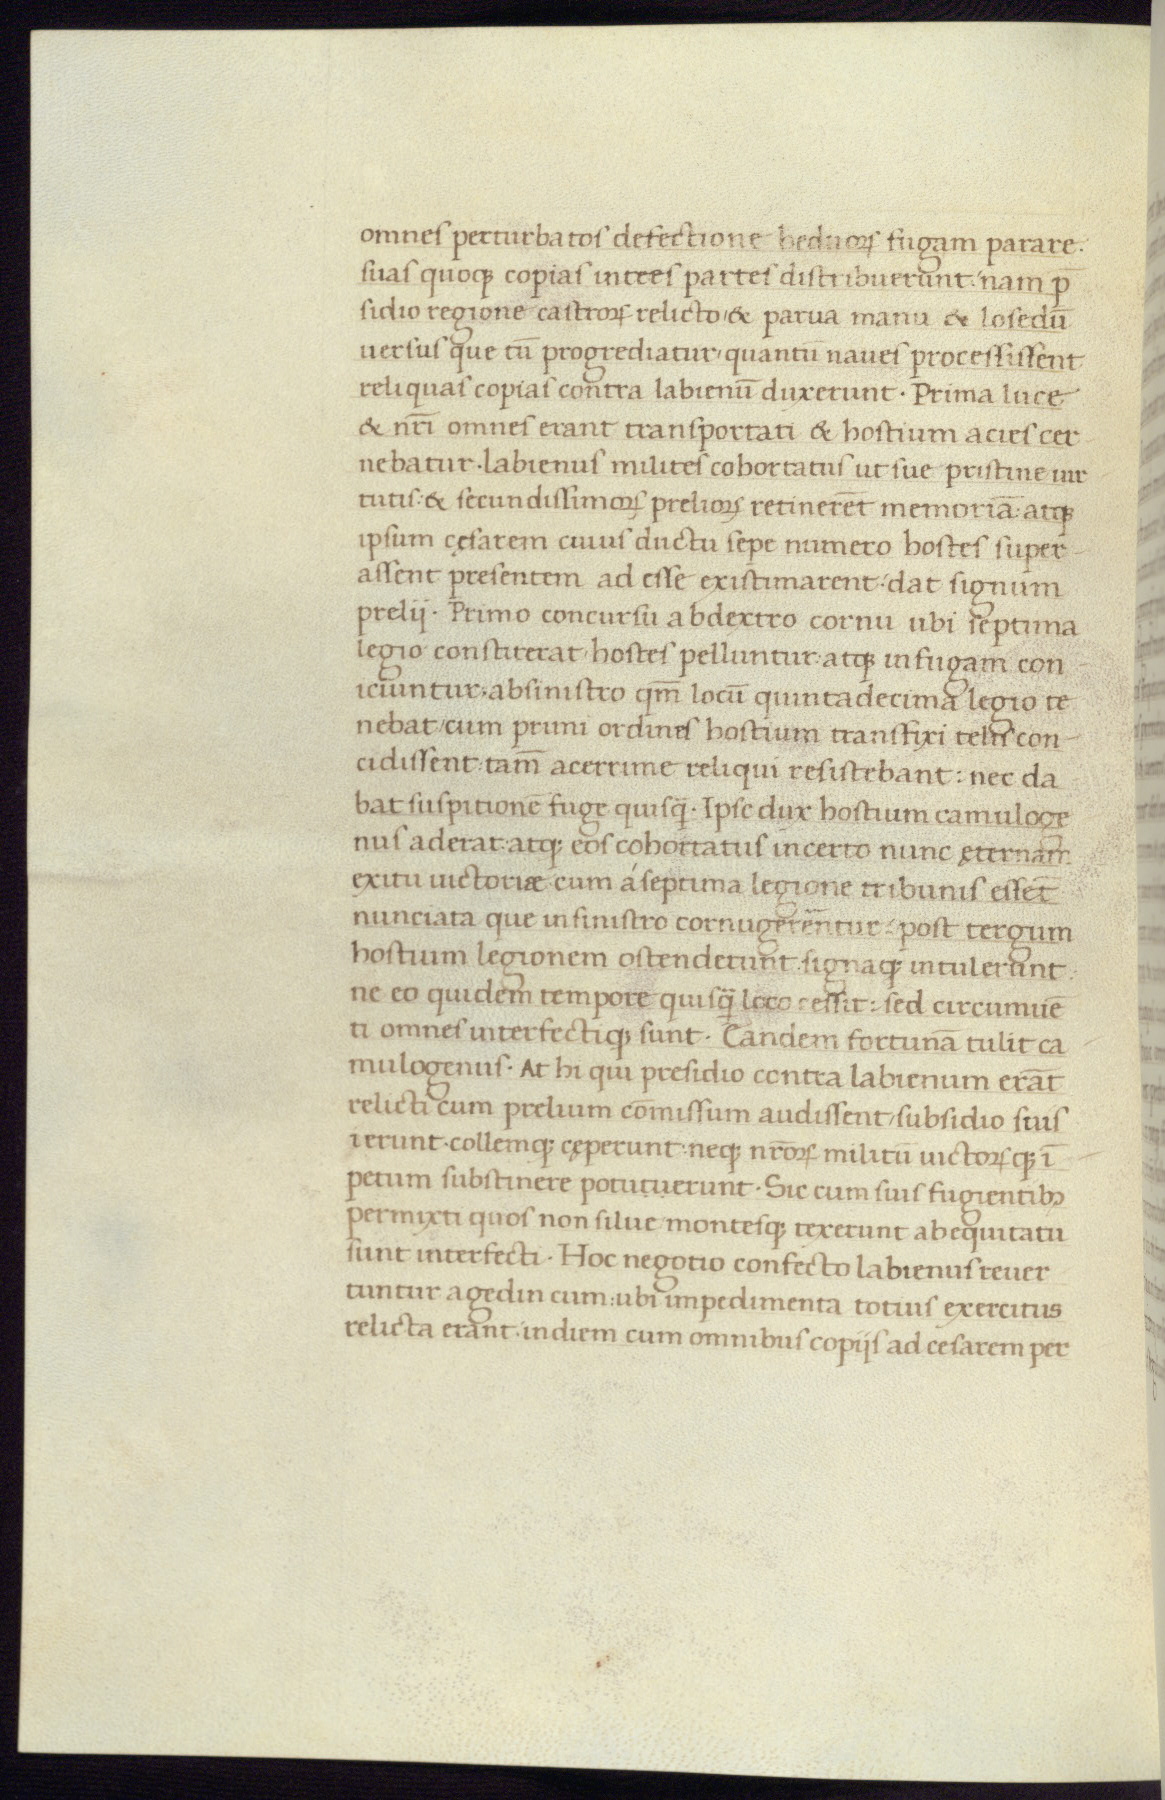 omnes perturbatos defectione heduoꝝ fugam parare.
suas quoqꝫ copias in tres partes distribuerunt. nam p̄
sidio regione castroꝝ relicto / & parua manu & losedū
uersus que tū progrediatur / quantū naues processissent
reliquas copias contra labienū duxerunt · Prima luce
& nr̄i omnes erant transportati & hostium acies cer
nebatur · labienus milites cohortatus ut sue pristine uir
tutis: & secundissimoꝝ prelioꝝ retinerēt memoriā: atqꝫ
ipsum cęsarem cuius ductu sepe numero hostes super-
assent presentem ad esse existimarent: dat signum
prelij · Primo concursu abdextro cornu ubi septima
legio constiterat / hostes pelluntur: atqꝫ in fugam con
iciuntur: absinistro qm̄ locū quintadecima legio te
nebat / cum primi ordines hostium transfixi telis con-
cidissent: tam̄ acerrime reliqui resistebant: nec da
bat suspitionē fuge quisq̄ · Ipse dux hostium camuloge
nus aderat: atqꝫ eos cohortatus incerto nunc ęternam
exitu uictoriæ cum á septima legione tribunis essēt
nunciata que in sinistro cornu gerēntur: post tergum
hostium legionem ostenderunt: signaqꝫ intulerunt:
ne eo quidem tempore quisq̄ loco cessit: sed circumuē
ti omnes interfectiqꝫ sunt · Eandem fortunā tulit ca
mulogenus · At hi qui presidio contra labienum erāt
relicti cum prelium cōmissum audissent / subsidio suis
ierunt · collemqꝫ cęperunt: neqꝫ nr̄oꝝ militū uictoꝝqꝫ ī
petum substinere potutuerunt · Sic cum suis fugientibꝫ
permixti quos non silue montesqꝫ texerunt abequitatu
sunt interfecti · Hoc negotio confecto labienus reuer
tuntur agedin cum: ubi impedimenta totius exercitus
relicta erant: indiem cum omnibus copijs ad cesarem per